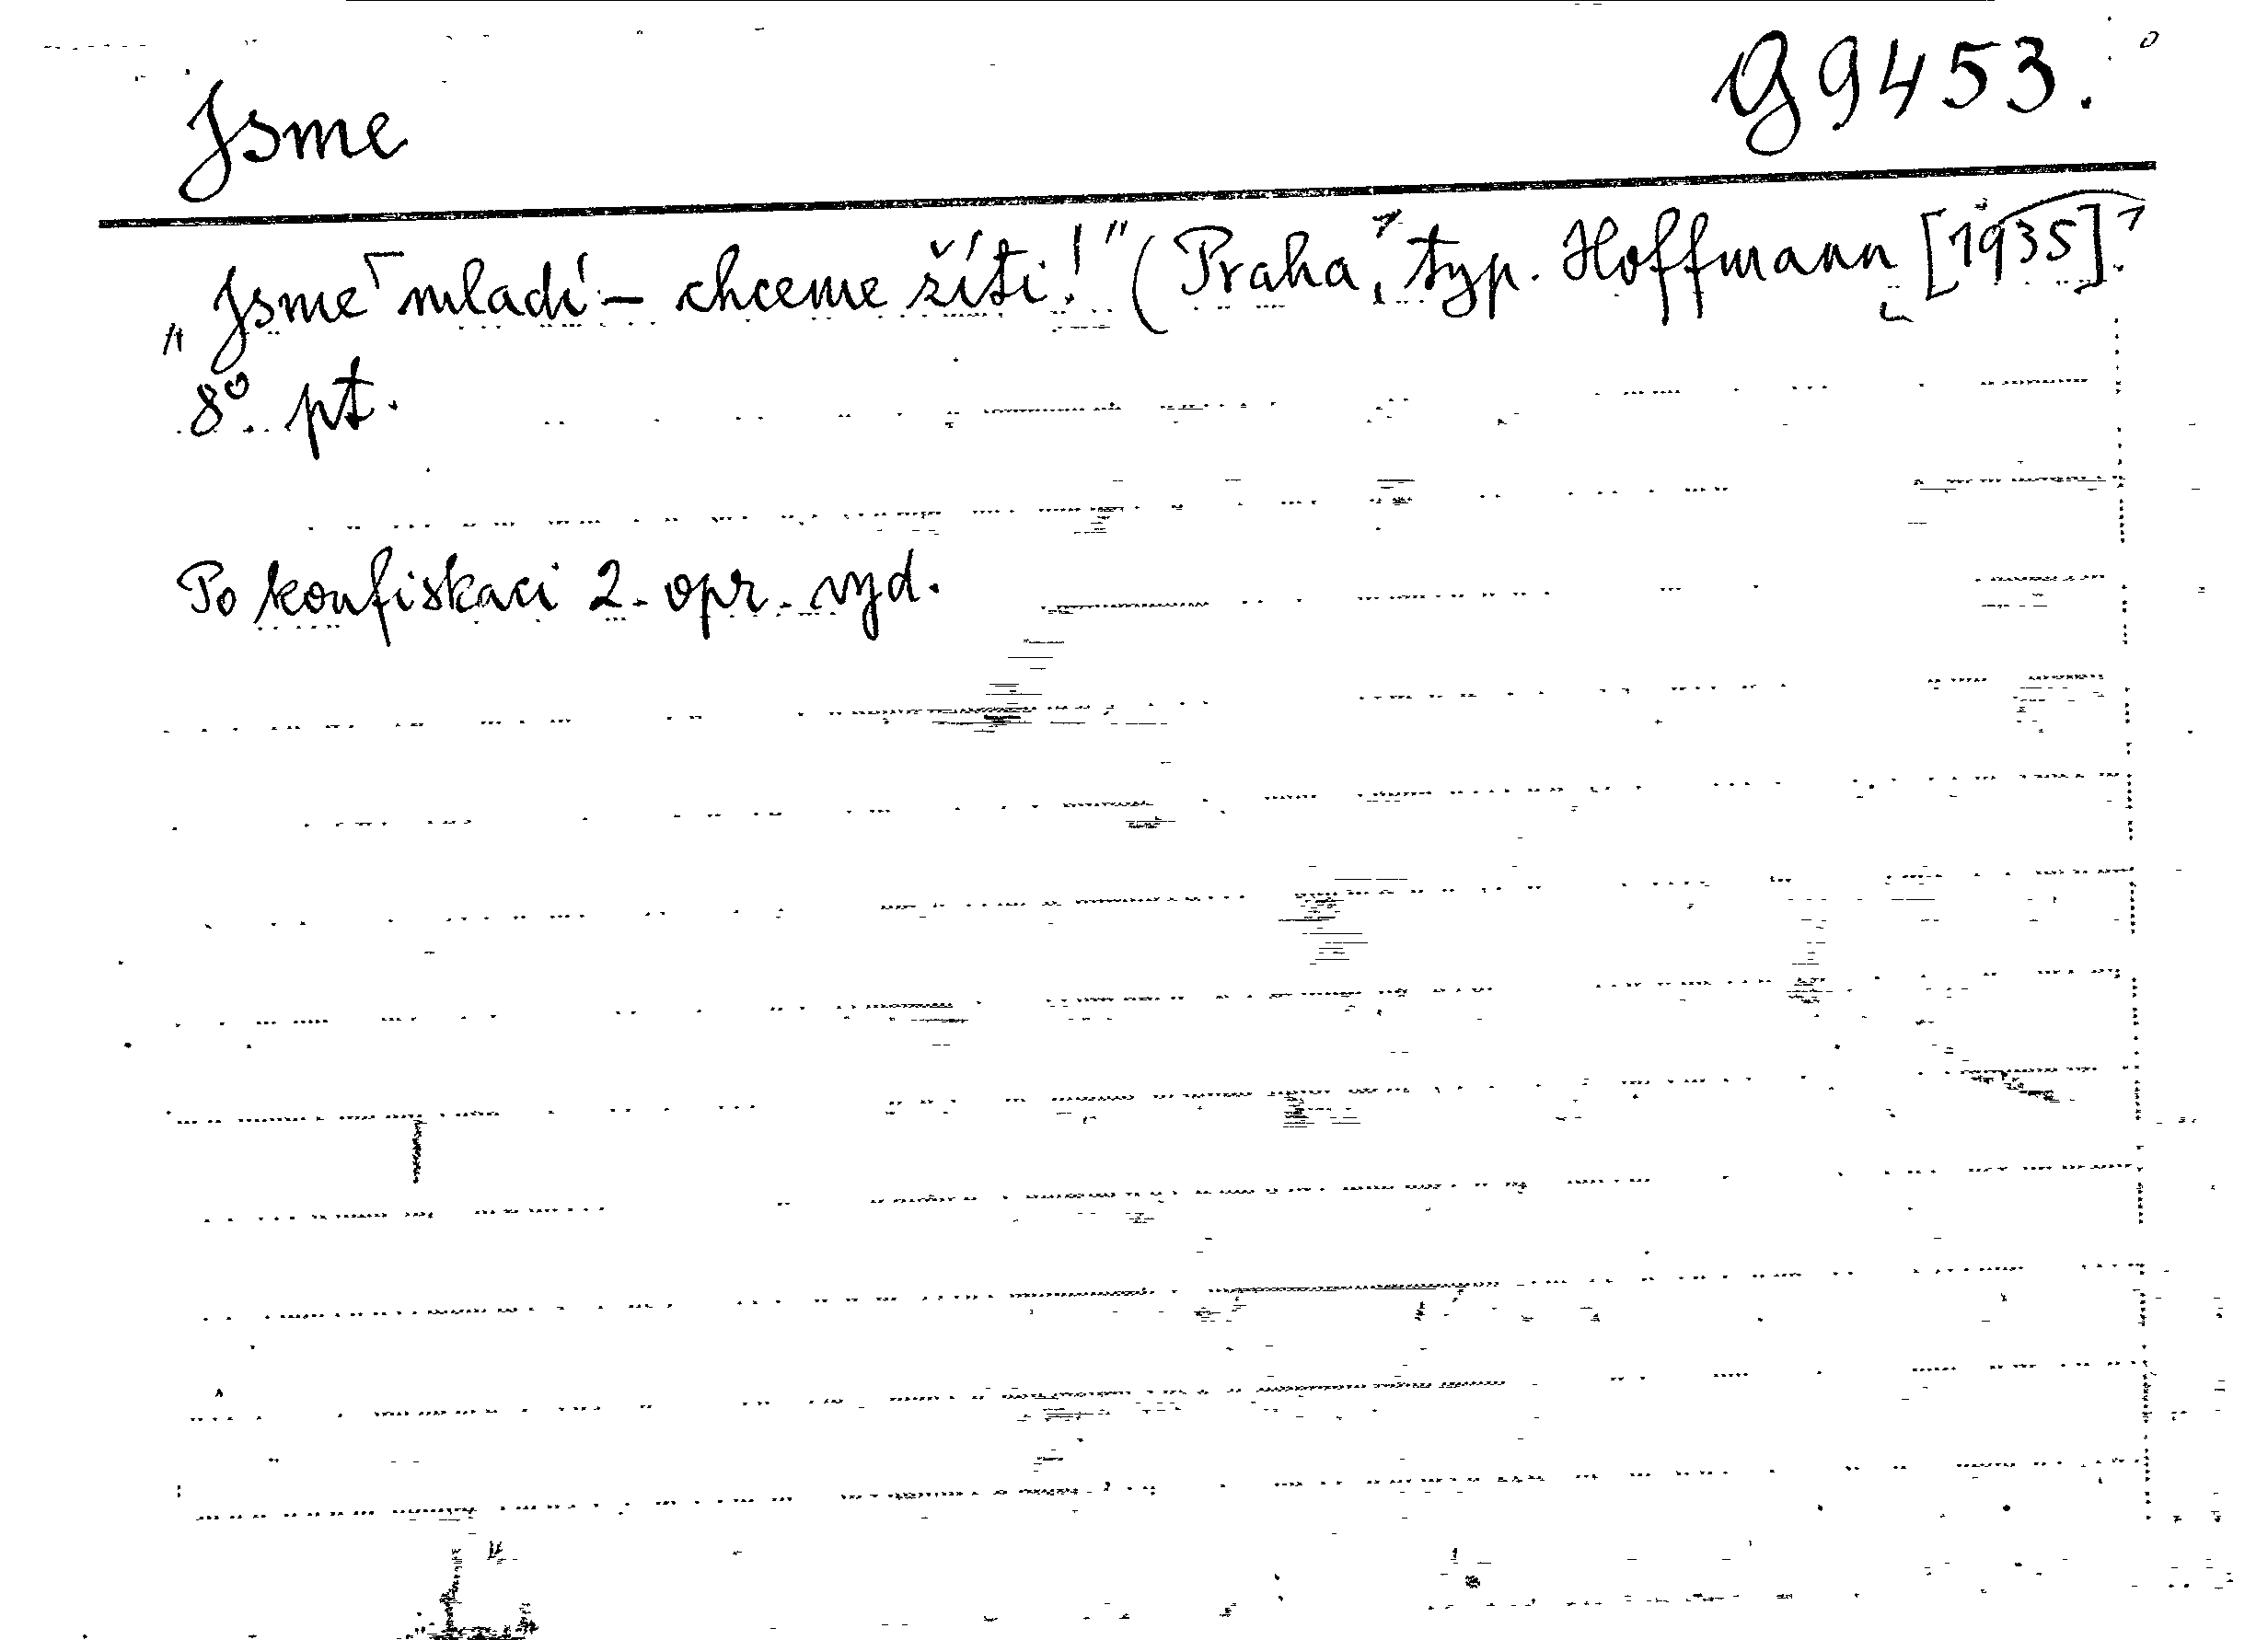 Jsme G 9453.
„Jsme mladí – chceme žíti!" (Praha, typ. Hoffmann [1935].
8° pt.
Po konfiskaci 2. opr. vyd.